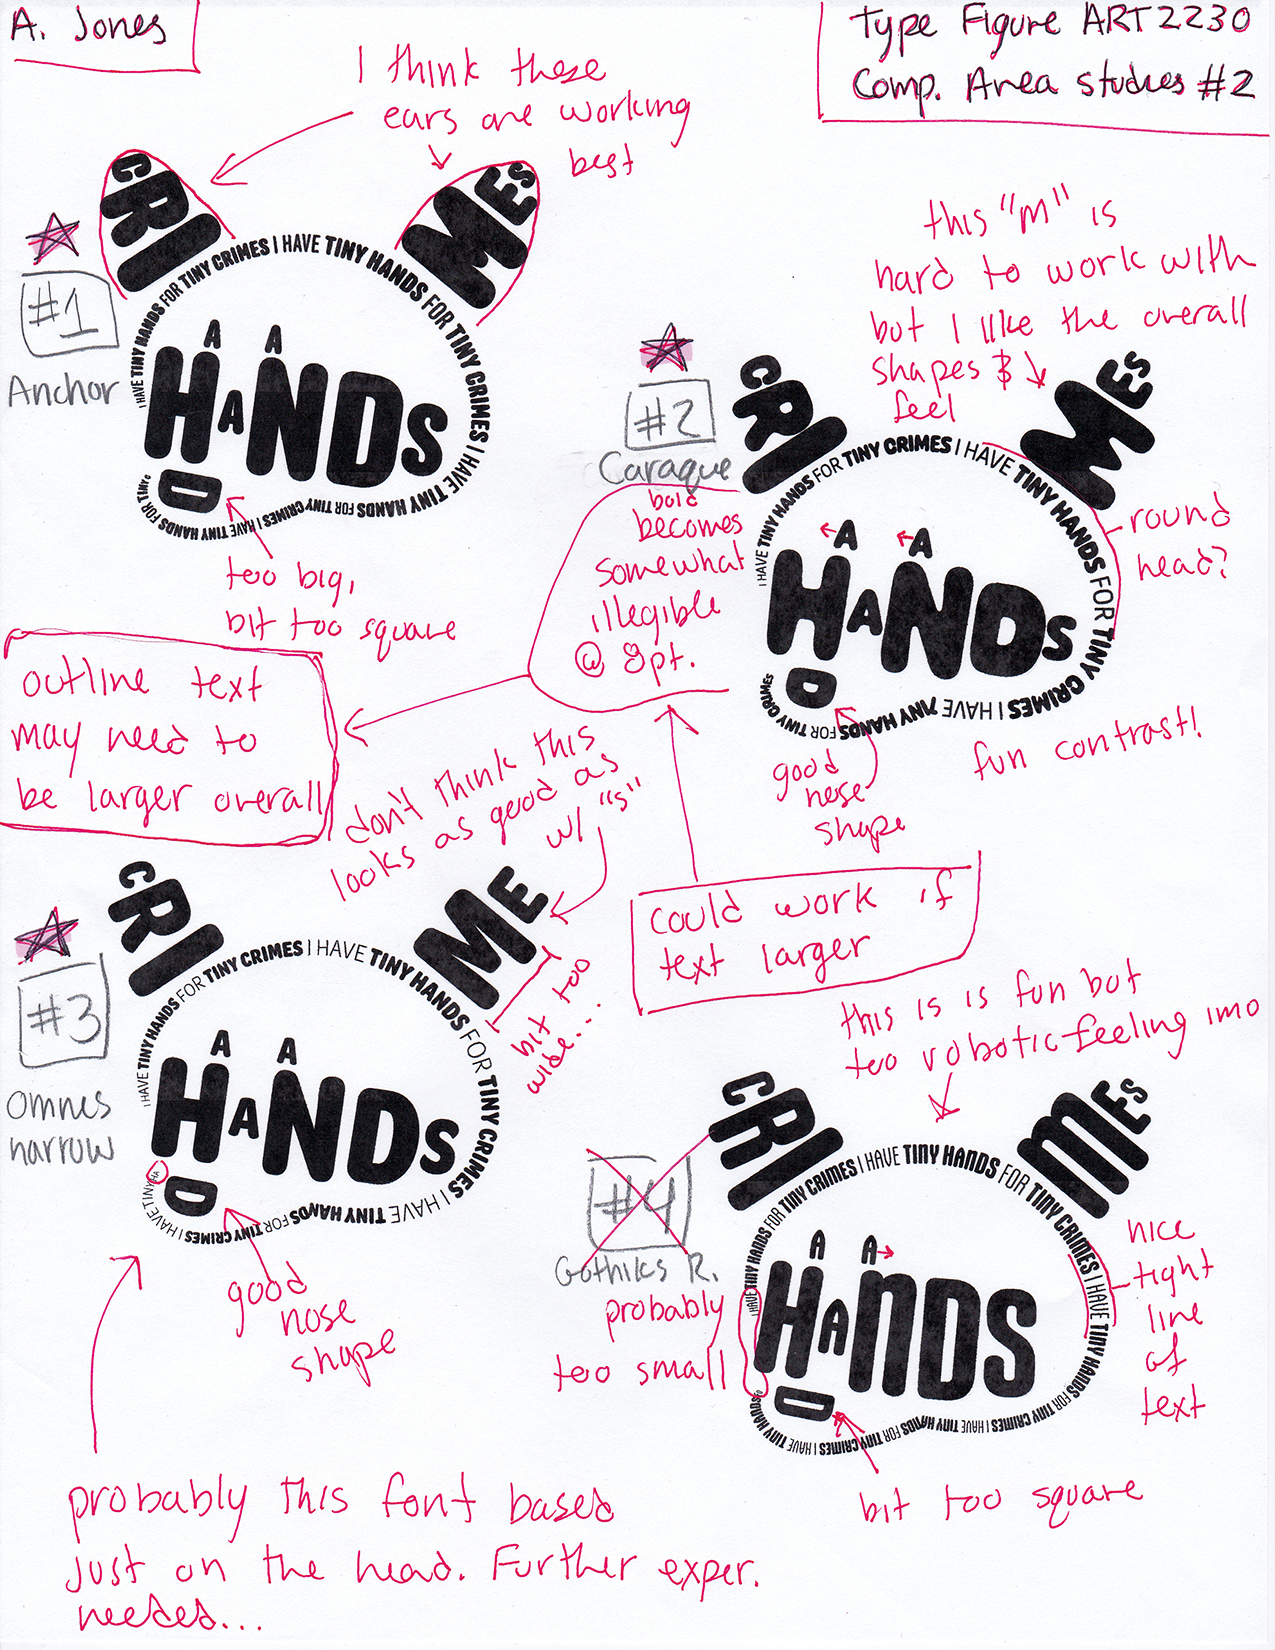 A. Jones
Type Figure ART2230
Comp. Area studies #2
I think these
ears are working
best
CRI
MEs
I HAVE TINY HANDS FOR TINY CRIMES I HAVE TINY HANDS FOR TINY CRIMES I HAVE TINY HANDS FOR TINY CRIMES I HAVE TINY HANDS FOR TINY
#1
Anchor
A A
HANDS
D
too big,
bit too square
this "M" is
hard to work with
but I like the overall
shapes &
feel
#2
Caraque
CRI
MEs
I HAVE TINY HANDS FOR TINY CRIMES I HAVE TINY HANDS FOR TINY CRIMES I HAVE TINY HANDS FOR TINY CRIMES
A A
HANDS
D
round
head?
bold
becomes
somewhat
illegible
@ 8pt.
good
nose
shape
fun contrast!
outline text
may need to
be larger overall
don't think this
looks as good as
w/ "s"
could work if
text larger
CRI
ME
I HAVE TINY HANDS FOR TINY CRIMES I HAVE TINY HANDS FOR TINY CRIMES I HAVE TINY HANDS FOR TINY CRIMES I HAVE TINY HA
#3
Omnes
narrow
A A
HANDS
D
bit too
wide...
good
nose
shape
this is is fun but
too robotic-feeling imo
CRI
MEs
I HAVE TINY HANDS FOR TINY CRIMES I HAVE TINY HANDS FOR TINY CRIMES I HAVE TINY HANDS FOR TINY CRIMES I HAVE TINY HANDS FOR TINY CRIMES I HAVE TINY HANDS
#4
Gothiks R.
A A
HANDS
D
probably
too small
nice
tight
line
of
text
bit too square
probably this font based
just on the head. Further exper.
needed...